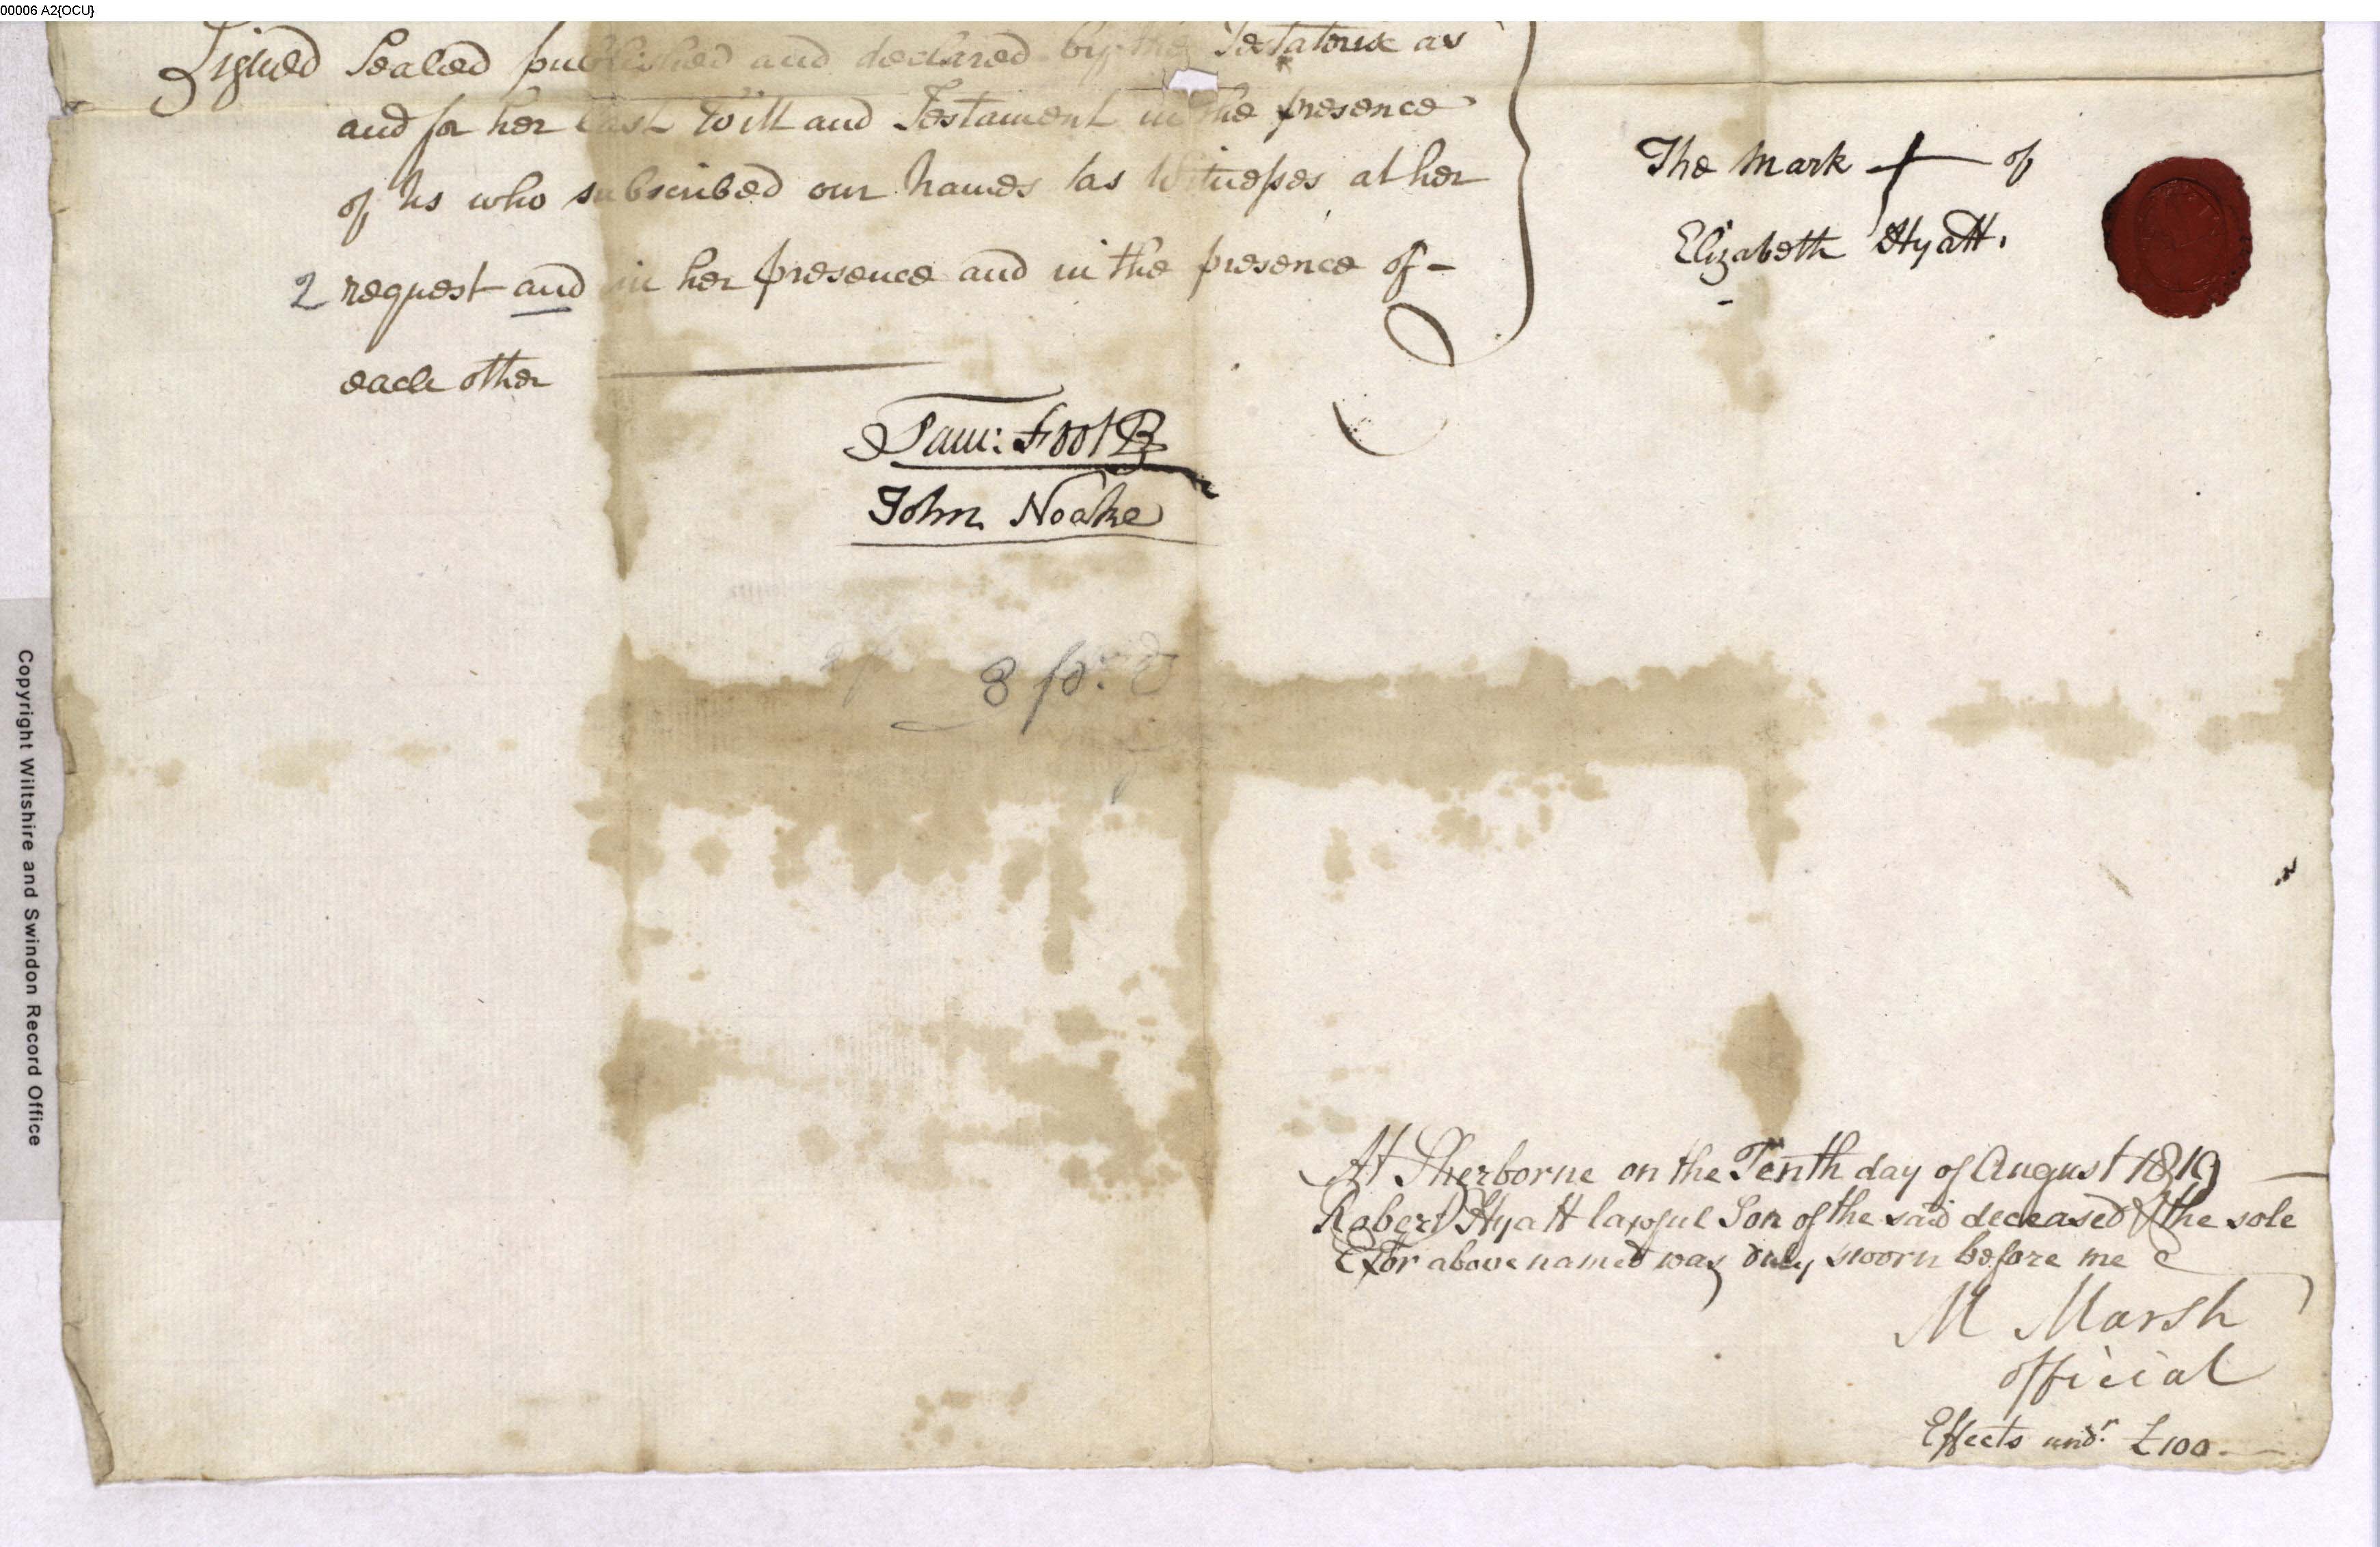 00006 A2{OCU}
Signed Sealed published and declared by the Testatrix as
and for her last Will and Testament in the presence
of us who subscribed our Names as Witnesses at her
2 request and in her presence and in the presence of -
each other
The Mark + of
Elizabeth Hyatt.
Sam: Foot
John Noake
8 fo:
At Sherborne on the Tenth day of August 1819
Robert Hyatt lawful Son of the said deceased & the sole
Exor above named was duly sworn before me
M Marsh
Official
Effects undr. £100.
Copyright Wiltshire and Swindon Record Office